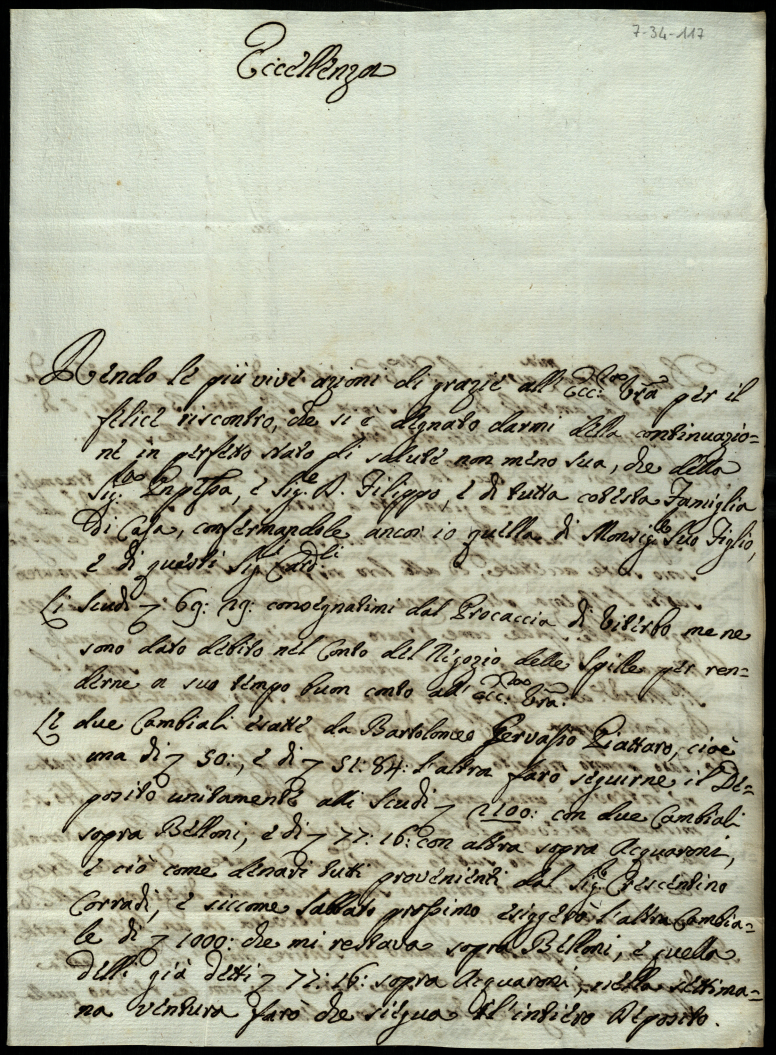 7-34-117
Eccellenza
Rendo le più vive azioni di grazie all'Ecc.za Vr̃a per il
felice riscontro, che si è degnato darmi della continuazio=
ne in perfetto stato di salute non meno sua, che della
Sig.ra, e Sig.re D. Filippo, e di tutta cotesta Famiglia
di Casa, confermandole ancor io quella di Monsig.re suo Figlio,
e di questi Sig.ri Card.li
Li scudi 69: 29: consegnatimi dal Procaccia di Viterbo me ne
sono dato debito nel Conto del Negozio delle Spille per ren=
derne a suo tempo buon conto all'Ecc.za Vr̃a.
Le due Cambiali esatte da Bartolomeo Gervasio Piattaro, cioè
una di 50:, e di 51: 84: l'altra farò seguirne il De=
posito unitamente alli scudi 2100: con due Cambiali
sopra Belloni, e di 77: 16: con altra sopra Acquaroni,
e ciò come denari tutti provenienti dal Sig.re Crescentino
Corradi, e siccome sabbato prossimo esiggerò l'altra Cambia=
le di 1000: che mi restava sopra Belloni, e quella
delli già detti 77: 16: sopra Acquaroni, nella settima=
na ventura farò che siegua l'intiero Deposito.